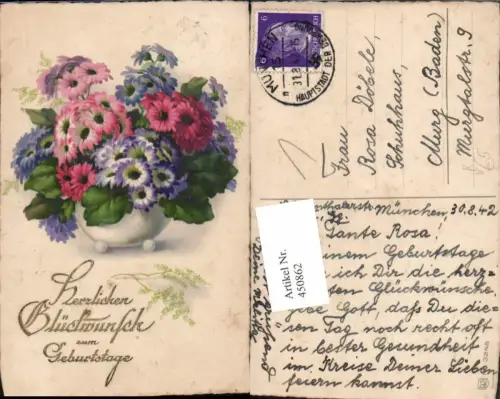 Herzlichen
Glückwunsch
zum
Geburtstage
6
6
MÜNCHEN
31.8
HAUPTSTADT DER
Frau
Rosa Döbele,
Schuhhaus,
Murg (Baden)
Murgtalstr. 9
Artikel Nr.
450862
München, 30.8.42
Tante Rosa!
einem Geburtstage
ich Dir die herz
ten Glückwünsche
gebe Gott, daß Du die-
sen Tag noch recht oft
in bester Gesundheit
im Kreise Deiner Lieben
feiern kannst.